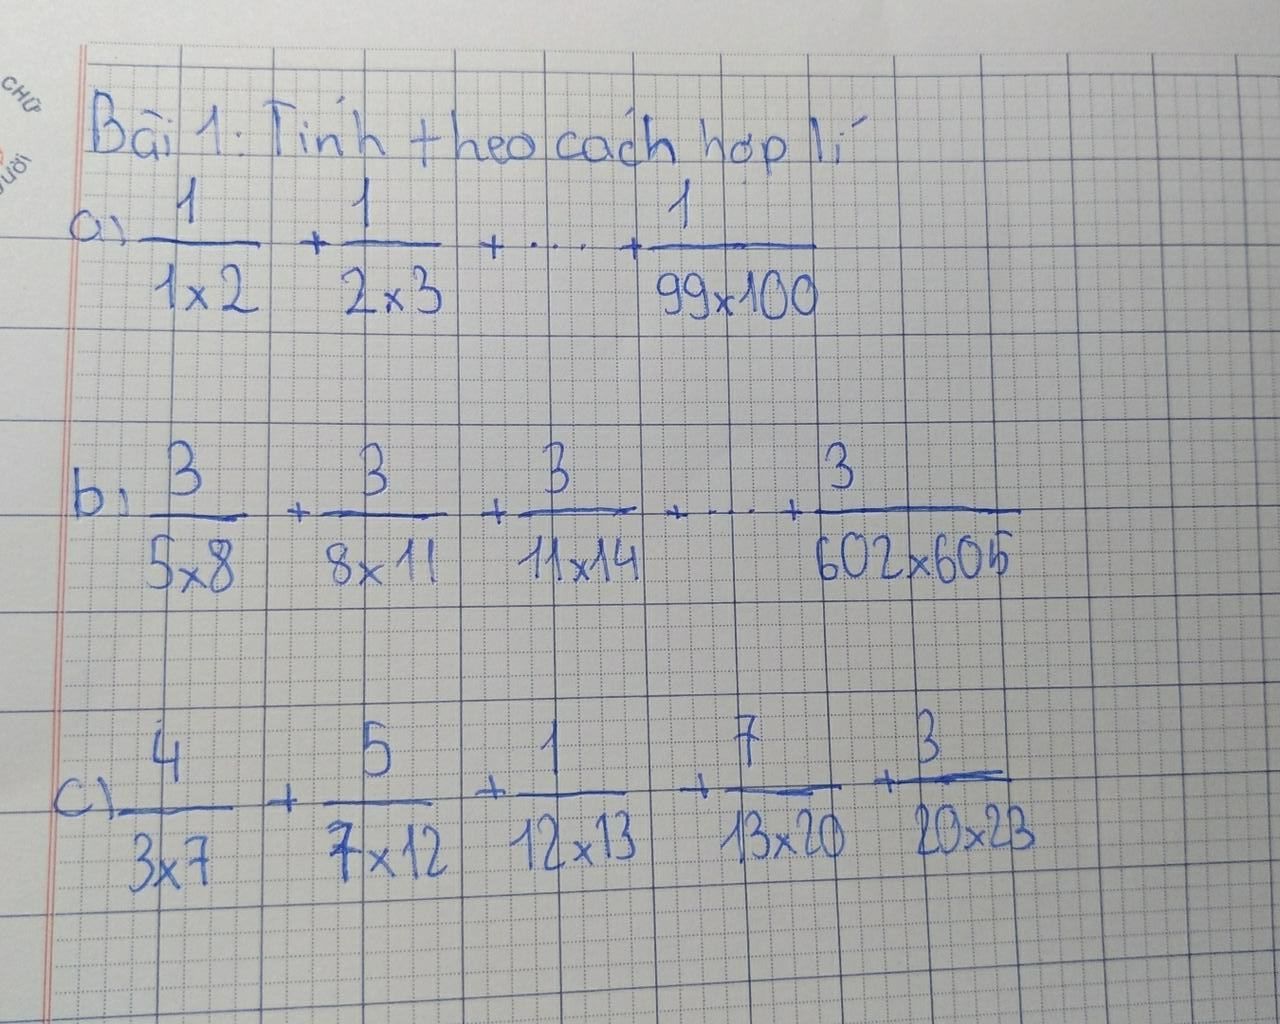 CHỮ
Bài 1: Tính theo cách hợp lí
a) 1/(1x2) + 1/(2x3) + .... + 1/(99x100)
b, 3/(5x8) + 3/(8x11) + 3/(11x14) + .... + 3/(602x605)
c) 4/(3x7) + 5/(7x12) + 1/(12x13) + 7/(13x20) + 3/(20x23)